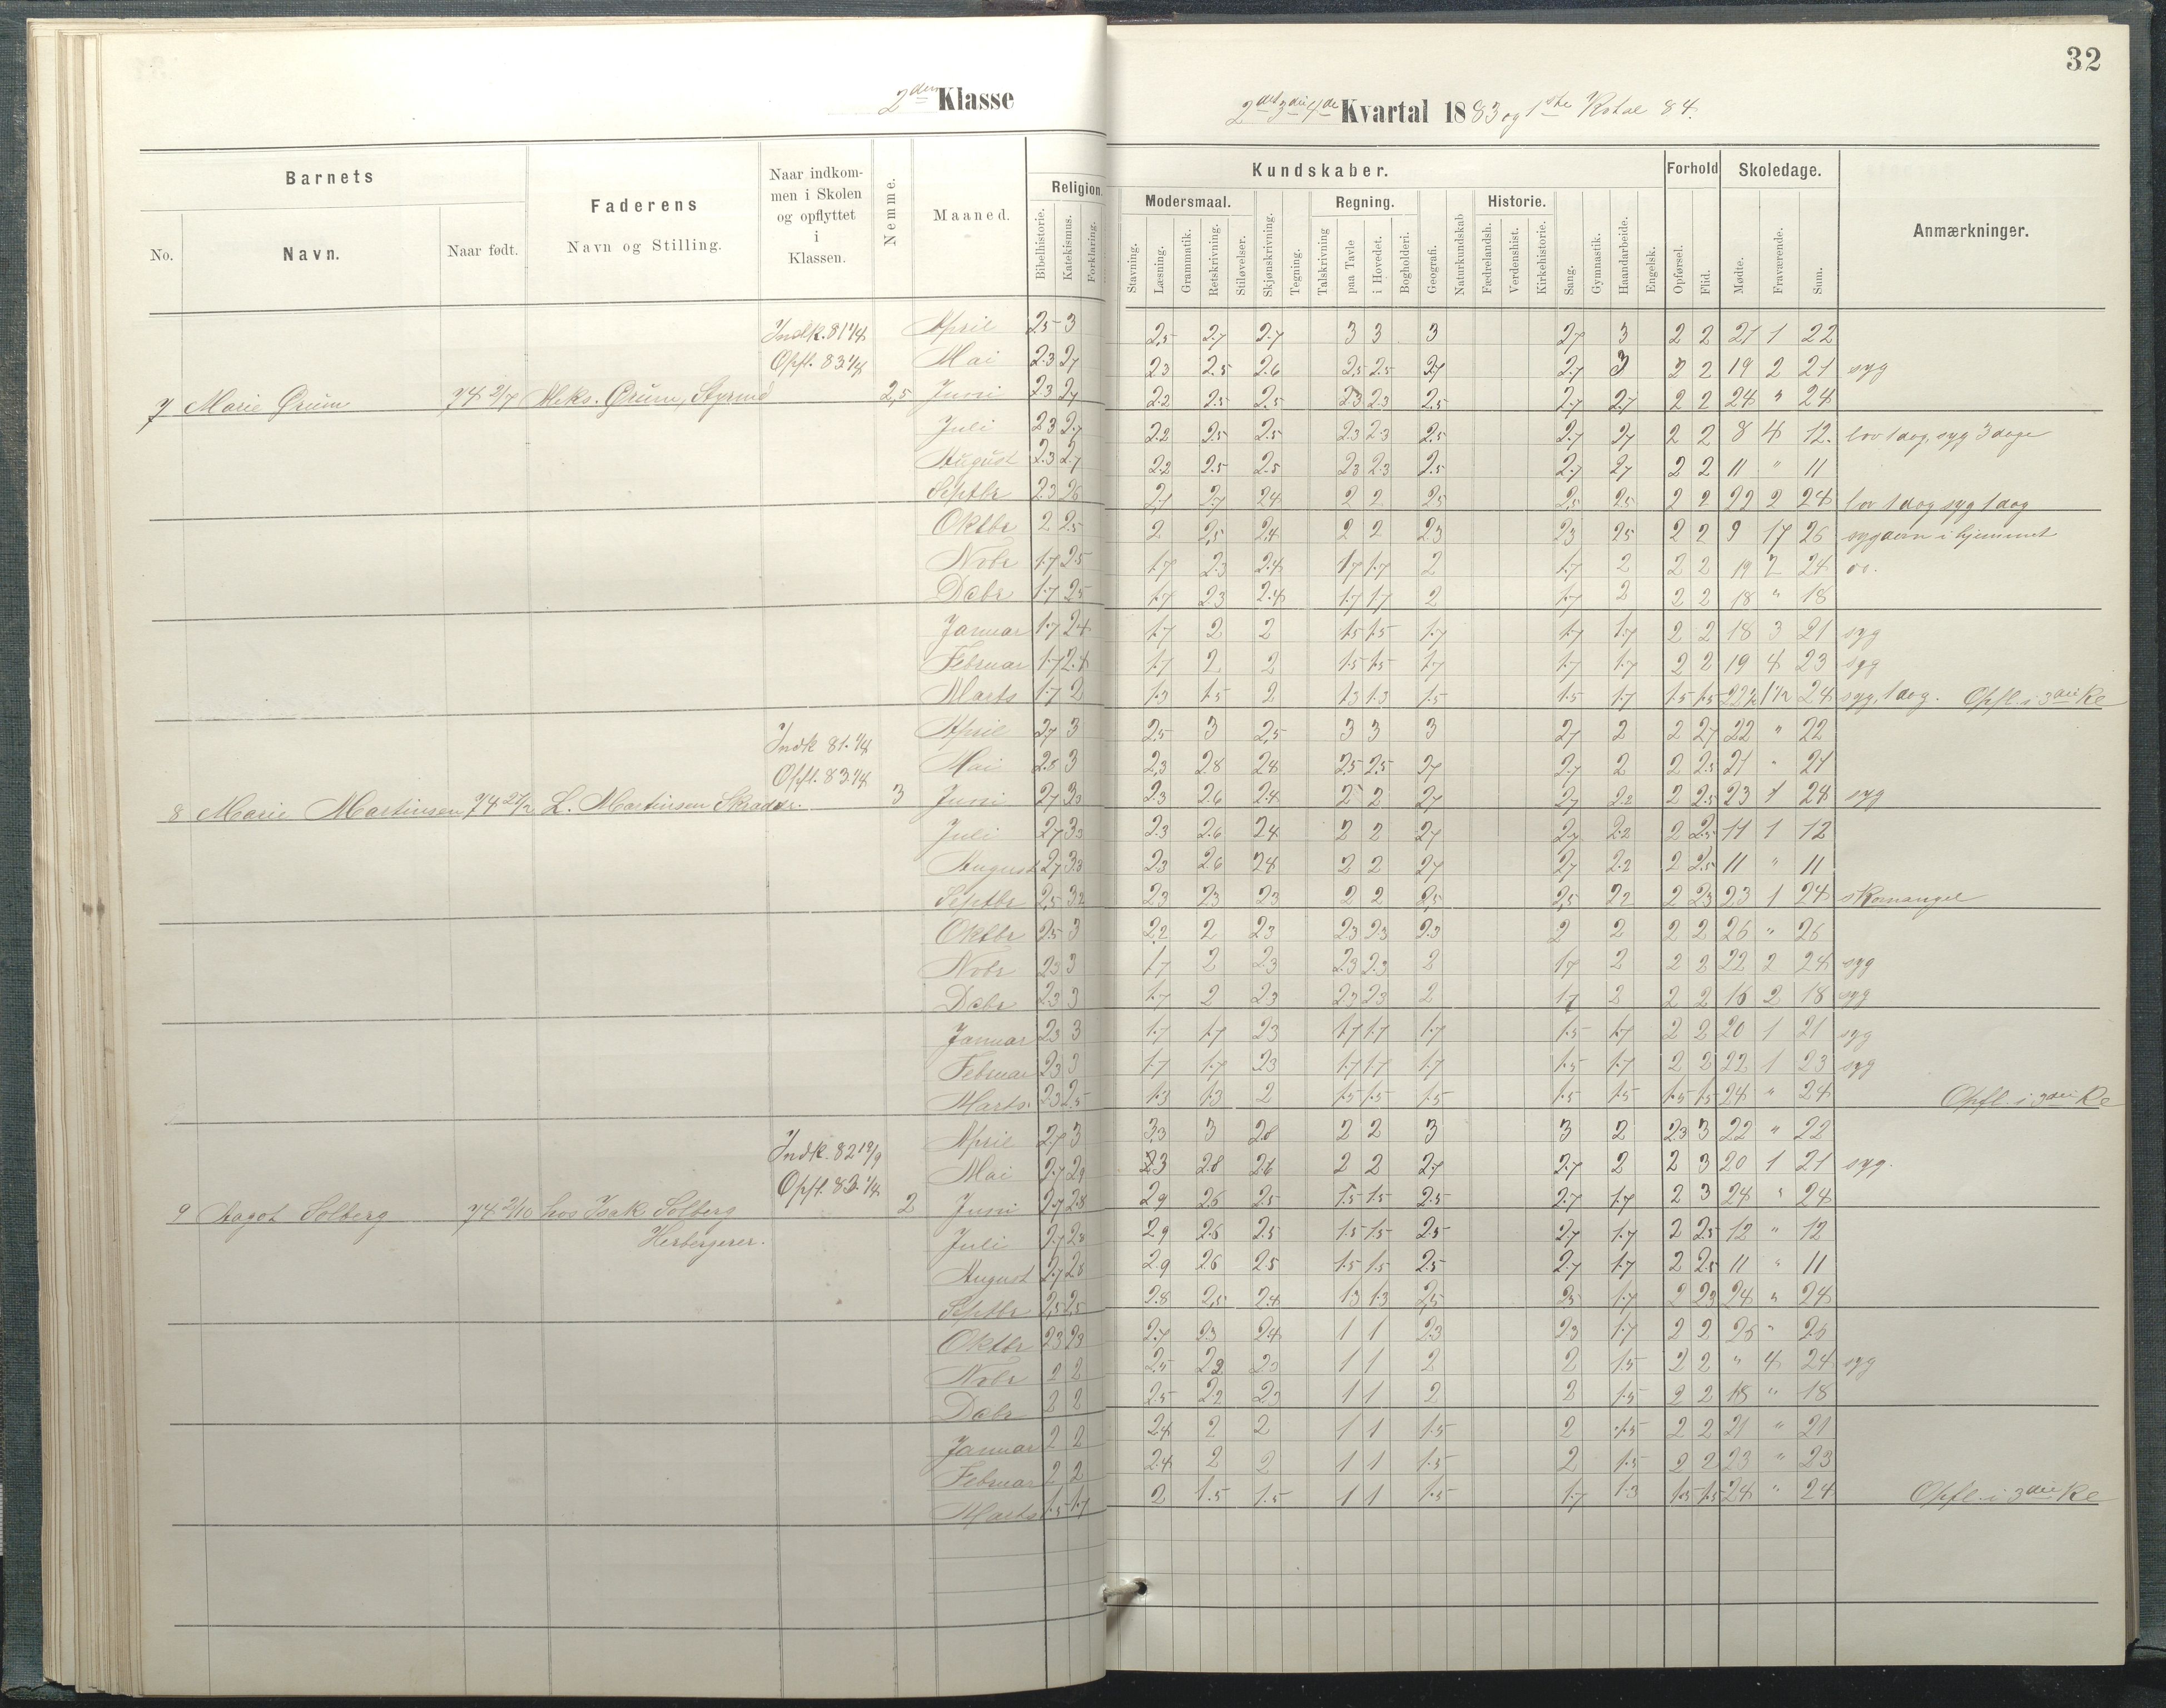 32
2den Klasse
2det 3die 4de Kvartal 1883 og 1ste Kvtal 84.
Barnets
No.
Navn.
Naar født.
Faderens
Navn og Stilling.
Naar indkom-
men i Skolen
og opflyttet
i
Klassen.
Nemme.
Maaned.
Kundskaber.
Religion.
Bibelhistorie.
Katekismus.
Forklaring.
Modersmaal.
Stavning.
Læsning.
Grammatik.
Retskrivning.
Stiløvelser.
Skjønskrivning.
Tegning.
Regning.
Talskrivning
paa Tavle
i Hovedet.
Bogholderi.
Geografi.
Naturkundskab
Historie.
Fædrelandsh.
Verdenshist.
Kirkehistorie.
Sang.
Gymnastik.
Haandarbeide.
Engelsk.
Forhold
Opførsel.
Flid.
Skoledage.
Mødte.
Fraværende.
Sum.
Anmærkninger.
Indk. 81 1/4
Opfl. 83 1/4
7 Marie Grum 74 2/7 Aleks. Grum, Styrmd 2,5
April 2.5 3 2,5 2.7 2.7 3 3 3 2.7 3 2 2 21 1 22
Mai 2.3 2.7 2.3 2.5 2.6 2.5 2.5 2.7 2.7 3 2 2 19 2 21 syg
Juni 2.3 2.7 2.2 2.5 2.5 2.3 2.3 2.5 2.7 2.7 2 2 24 " 24
Juli 2.3 2.7 2.2 2.5 2.5 2.3 2.3 2.5 2.7 2.7 2 2 8 4 12. lov 1 dag, syg 3 dage
August 2.3 2.7 2.2 2.5 2.5 2.3 2.3 2.5 2.7 2.7 2 2 11 " 11
Septbr 2.3 2.6 2,1 2.7 2.4 2 2 2.5 2.5 2.5 2 2 22 2 24 lov 1 dag syg 1 dag
Oktbr 2 2.5 2 2,5 2,4 2 2 2.3 2.3 2.5 2 2 9 17 26 sygdom i hjemmet
Novbr 1.7 2.5 1.7 2.3 2.4 1.7 1.7 2 1.7 2 2 2 19 24
Decbr 1.7 2.5 1.7 2.3 2.4 1.7 1.7 2 1.7 2 2 2 18 " 18
Januar 1.7 2.4 1.7 2 2 1.5 1.5 1.7 1.7 1.7 2 2 18 3 21 syg
Februar 1.7 2.4 1.7 2 2 1.5 1.5 1.7 1.7 1.7 2 2 19 4 23 syg
Marts 1.7 2 1.3 1.5 2 1.3 1.3 1.5 1.5 1.7 1.5 1.5 22½ 1½ 24 syg, 1 dag. Opfl. i 3die Kl
Indk 81. 1/4
Opfl. 83. 1/4
8 Marie Martinsen 74 27/2 L. Martinsen Skrædder. 3
April 2.7 3 2.5 3 2,5 3 3 3 2.7 2 2 2.7 22 " 22
Mai 2.8 3 2,3 2.8 2.4 2.5 2.5 2.7 2.7 2 2 2.5 21 " 21
Juni 2.7 3.3 2.3 2.6 2.4 2 2 2.7 2.7 2.2 2 2.5 23 1 24 syg
Juli 2.7 3.3 2.3 2.6 2.4 2 2 2.7 2.7 2.2 2 2.5 11 1 12
August 2.7 3.3 2.3 2.6 2.4 2 2 2.7 2.7 2.2 2 2.5 11 " 11
Septbr 2,5 3.2 2.3 2.3 2.3 2 2 2,5 2,5 2.2 2 2.3 23 1 24 skomangel
Oktbr 2.5 3 2.2 2 2.3 2.3 2.3 2.3 2 2 2 2 26 " 26
Novbr 2.3 3 1.7 2 2.3 2.3 2.3 2 1.7 2 2 2 22 2 24 syg
Decbr 2.3 3 1.7 2 2.3 2.3 2.3 2 1.7 2 2 2 16 2 18 syg
Januar 2.3 3 1.7 1.7 2.3 1.7 1.7 1.7 1.5 1.7 2 2 20 1 21 syg
Februar 2.3 3 1.7 1.7 2.3 1.7 1.7 1.7 1.5 1.7 2 2 22 1 23 syg
Marts. 2.3 2.5 1.3 1.3 2 1.5 1.5 1.5 1.5 1.5 1.5 1.5 24 " 24 Opfl. i 3die Kl
Indk. 82 12/9
Opfl. 83. 1/4
9 Aagot Solberg 74 2/10 hos Isak Solberg 2
Herbergerer.
April 2.7 3 3,3 3 2.8 2 2 3 3 2 2.3 3 22 " 22
Mai 2.7 2.9 3 2.8 2.6 2 2 2.7 2.7 2 2 3 20 1 21 syg.
Juni 2.7 2.8 2.9 2.6 2.5 1.5 1.5 2.5 2.7 1.7 2 3 24 " 24
Juli 2.7 2.8 2.9 2.6 2.5 1.5 1.5 2.5 2.7 1.7 2 2.5 12 " 12
August 2.7 2.8 2.9 2.6 2.5 1.5 1.5 2.5 2.7 1.7 2 2.5 11 " 11
Septbr 2,5 2,5 2.8 2,5 2.4 1.3 1.3 2,5 2.5 1.7 2 2.3 24 " 24
Oktbr 2.3 2.3 2.7 2.3 2.4 1 1 2.3 2.3 1.7 2 2 26 " 26
Novbr 2 2 2.5 2.2 2.3 1 1 2 2 1.5 2 2 " 4 24 syg
Decbr 2 2 2.5 2.2 2.3 1 1 2 2 1.5 2 2 18 " 18
Januar 2 2 2.4 2 2 1 1 1.5 2 1.5 2 2 21 " 21
Februar 2 2 2.4 2 2 1 1 1.5 2 1.5 2 2 23 " 23
Marts 1.5 1.7 2 1.5 1.5 1 1 1.5 1.7 1.3 1.5 1.5 24 " 24 Opfl. i 3die Kl